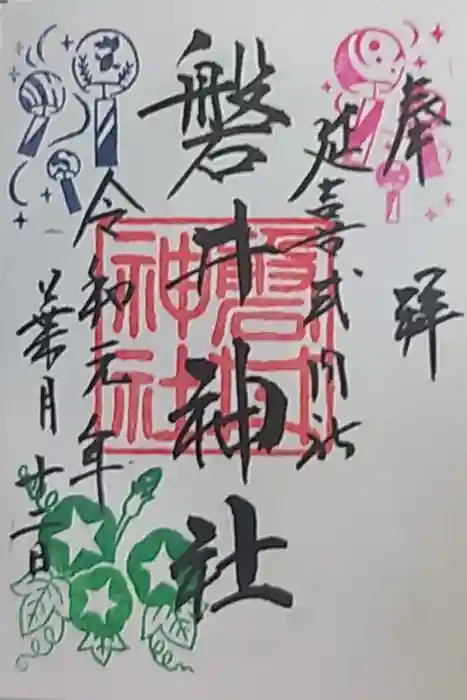 奉拝
延喜式内社
磐井神社
磐井神社
令和元年
葉月廿一日